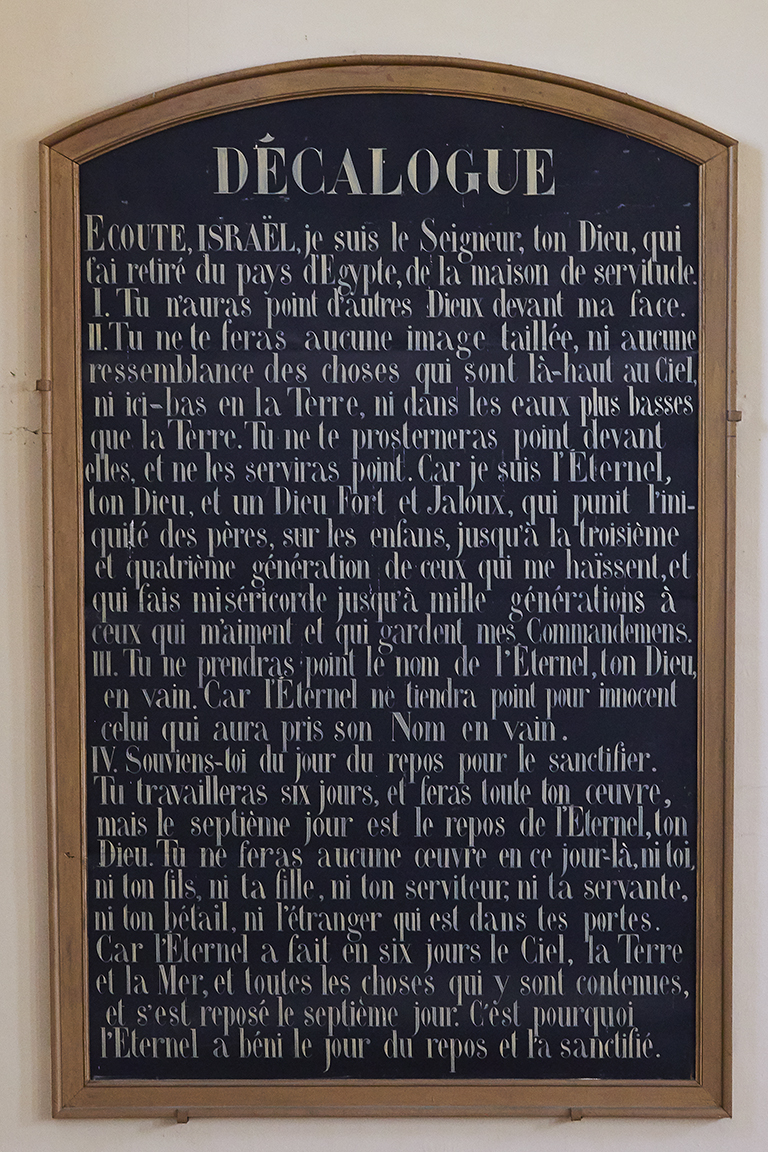 DÉCALOGUE
ECOUTE, ISRAËL, je suis le Seigneur, ton Dieu, qui
t'ai retiré du pays d'Egypte, de la maison de servitude.
I. Tu n'auras point d'autres Dieux devant ma face.
II. Tu ne te feras aucune image taillée, ni aucune
ressemblance des choses qui sont là-haut au Ciel,
ni ici-bas en la Terre, ni dans les eaux plus basses
que la Terre. Tu ne te prosterneras point devant
elles, et ne les serviras point. Car je suis l'Eternel,
ton Dieu, et un Dieu Fort et Jaloux, qui punit l'ini-
quité des pères, sur les enfans, jusqu'à la troisième
et quatrième génération de ceux qui me haïssent, et
qui fais miséricorde jusqu'à mille générations à
ceux qui m'aiment et qui gardent mes Commandemens.
III. Tu ne prendras point le nom de l'Eternel, ton Dieu,
en vain. Car l'Eternel ne tiendra point pour innocent
celui qui aura pris son Nom en vain.
IV. Souviens-toi du jour du repos pour le sanctifier.
Tu travailleras six jours, et feras toute ton œuvre,
mais le septième jour est le repos de l'Eternel, ton
Dieu. Tu ne feras aucune œuvre en ce jour-là, ni toi,
ni ton fils, ni ta fille, ni ton serviteur, ni ta servante,
ni ton bétail, ni l'étranger qui est dans tes portes.
Car l'Eternel a fait en six jours le Ciel, la Terre
et la Mer, et toutes les choses qui y sont contenues,
et s'est reposé le septième jour. C'est pourquoi
l'Eternel a béni le jour du repos et l'a sanctifié.